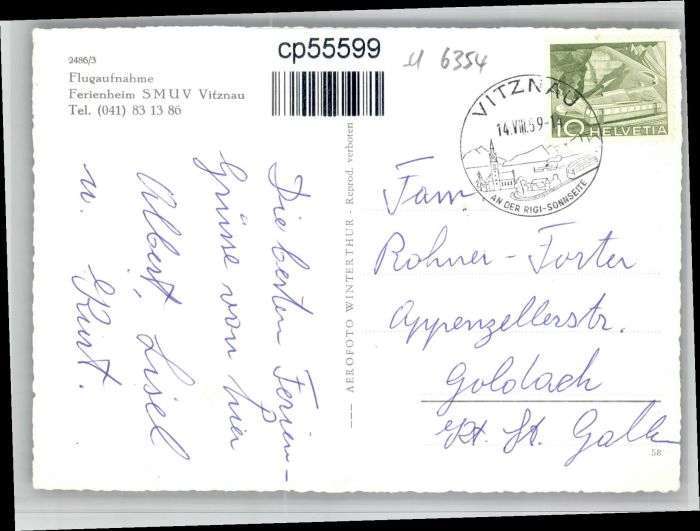 2486/3
Flugaufnahme
Ferienheim SMUV Vitznau
Tel. (041) 83 13 86
cp55599
6354
VITZNAU
14.VIII.59-11
AN DER RIGI-SONNSEITE
10 HELVETIA
AEROFOTO WINTERTHUR - Reprod. verboten
Die besten Ferien-
Grüsse von hier
Albert, Lisel
u. Kurt.
Fam.
Rohner-Forter
Appenzellerstr.
Goldach
Kt. St. Gallen
58